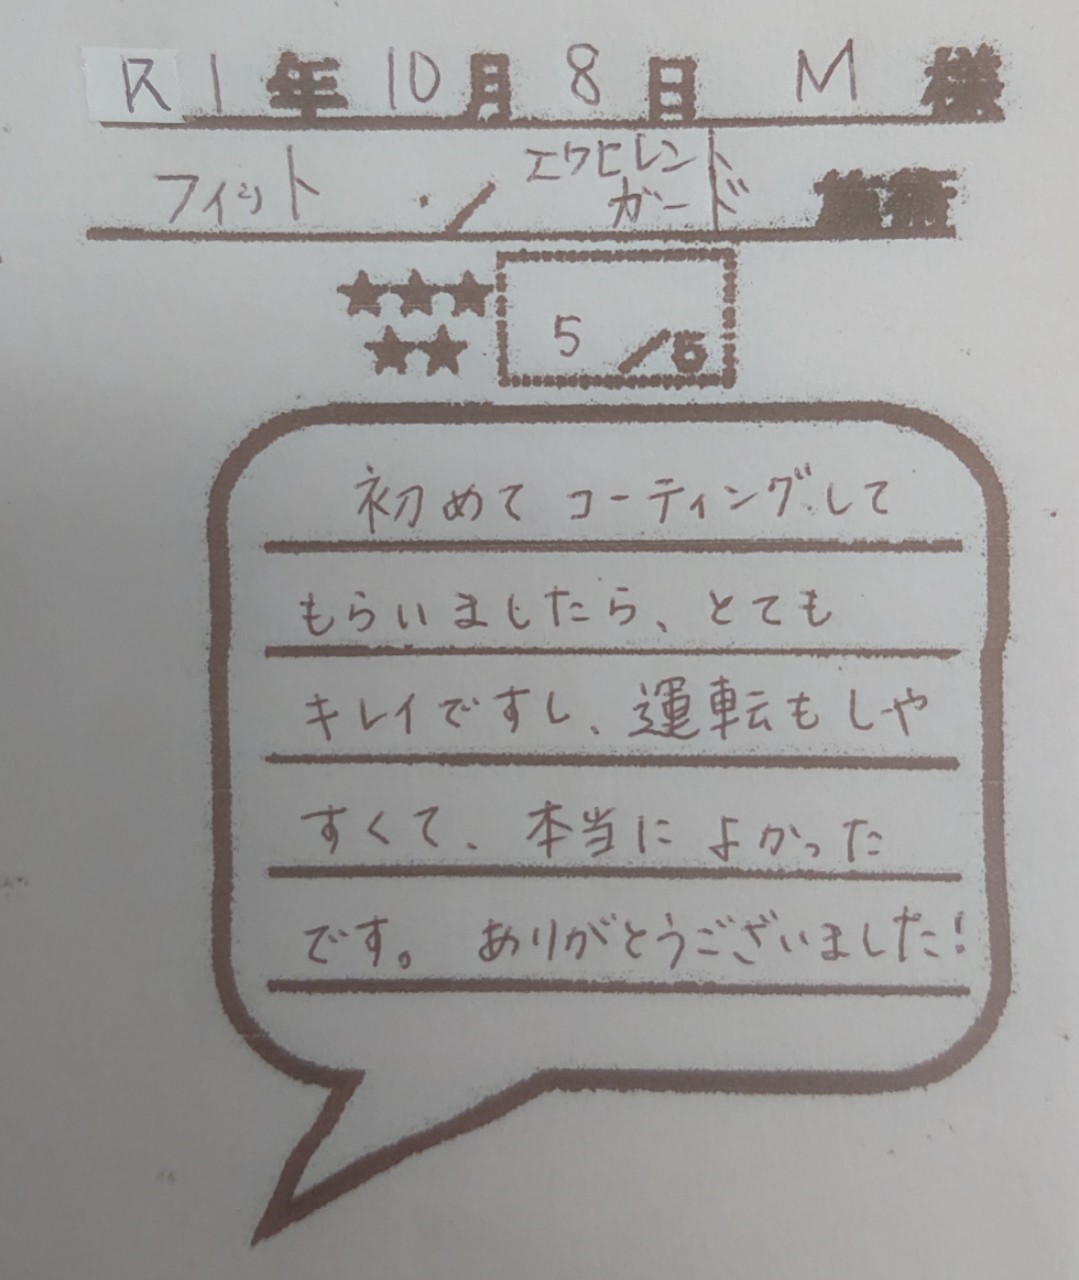 R1年10月8日 M様
フィット ・/ エクセレントガード 施術
★★★
★★
5/5
初めてコーティングして
もらいましたら、とても
キレイですし、運転もしや
すくて、本当によかった
です。 ありがとうございました!